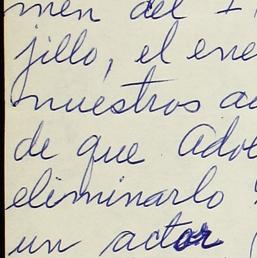 men del
jillo, el ene
nuestros a
de que Adol
eliminarlo
un actor (